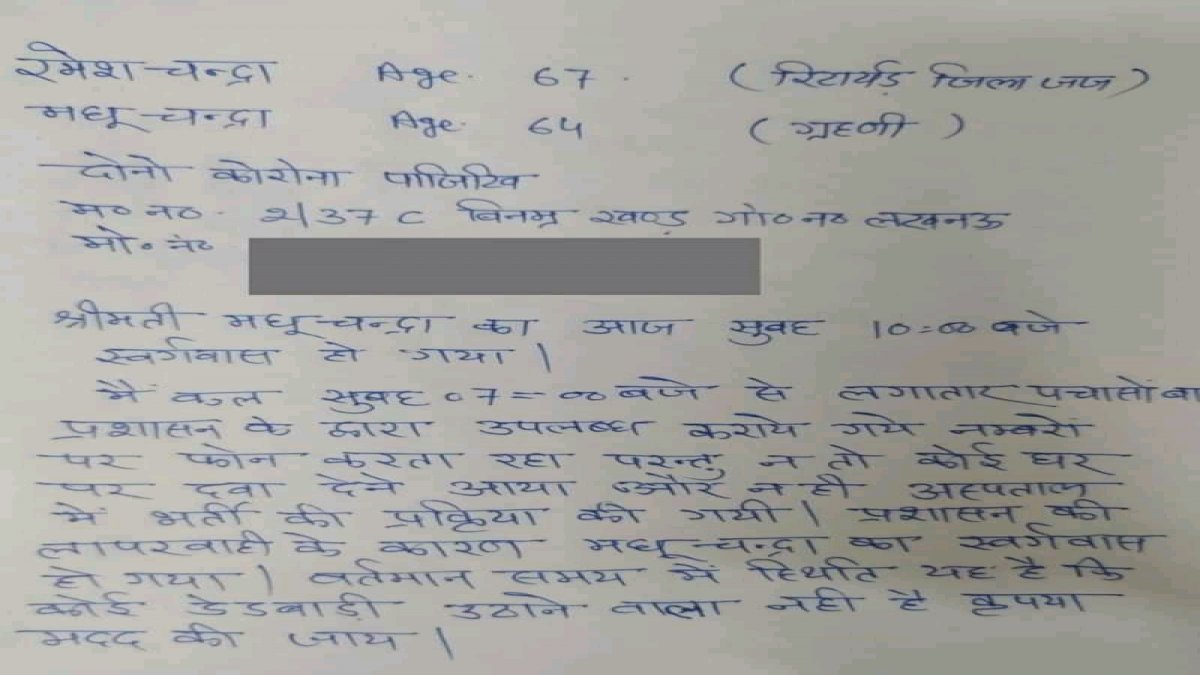 रमेश चन्द्रा Age. 67. (रिटार्यड जिला जज)
मधू चन्द्रा Age. 64 (ग्रहणी)
दोनो कोरोना पाजिटिव
म० न० 2/37 C विनम्र खण्ड गो० न० लखनऊ
मो. नं०
श्रीमती मधू चन्द्रा का आज सुबह 10=00 बजे
स्वर्गवास हो गया।
मैं कल सुबह 07=00 बजे से लगातार पचासों बा
प्रशासन के द्वारा उपलब्ध कराये गये नम्बरों
पर फोन करता रहा परन्तु न तो कोई घर
पर दवा देने आया और न ही अस्पताल
में भर्ती की प्रक्रिया की गयी। प्रशासन की
लापरवाही के कारण मधू चन्द्रा का स्वर्गवास
हो गया। वर्तमान समय में स्थिति यह है कि
कोई डेडबाड़ी उठाने वाला नही है कृपया
मदद की जाय।